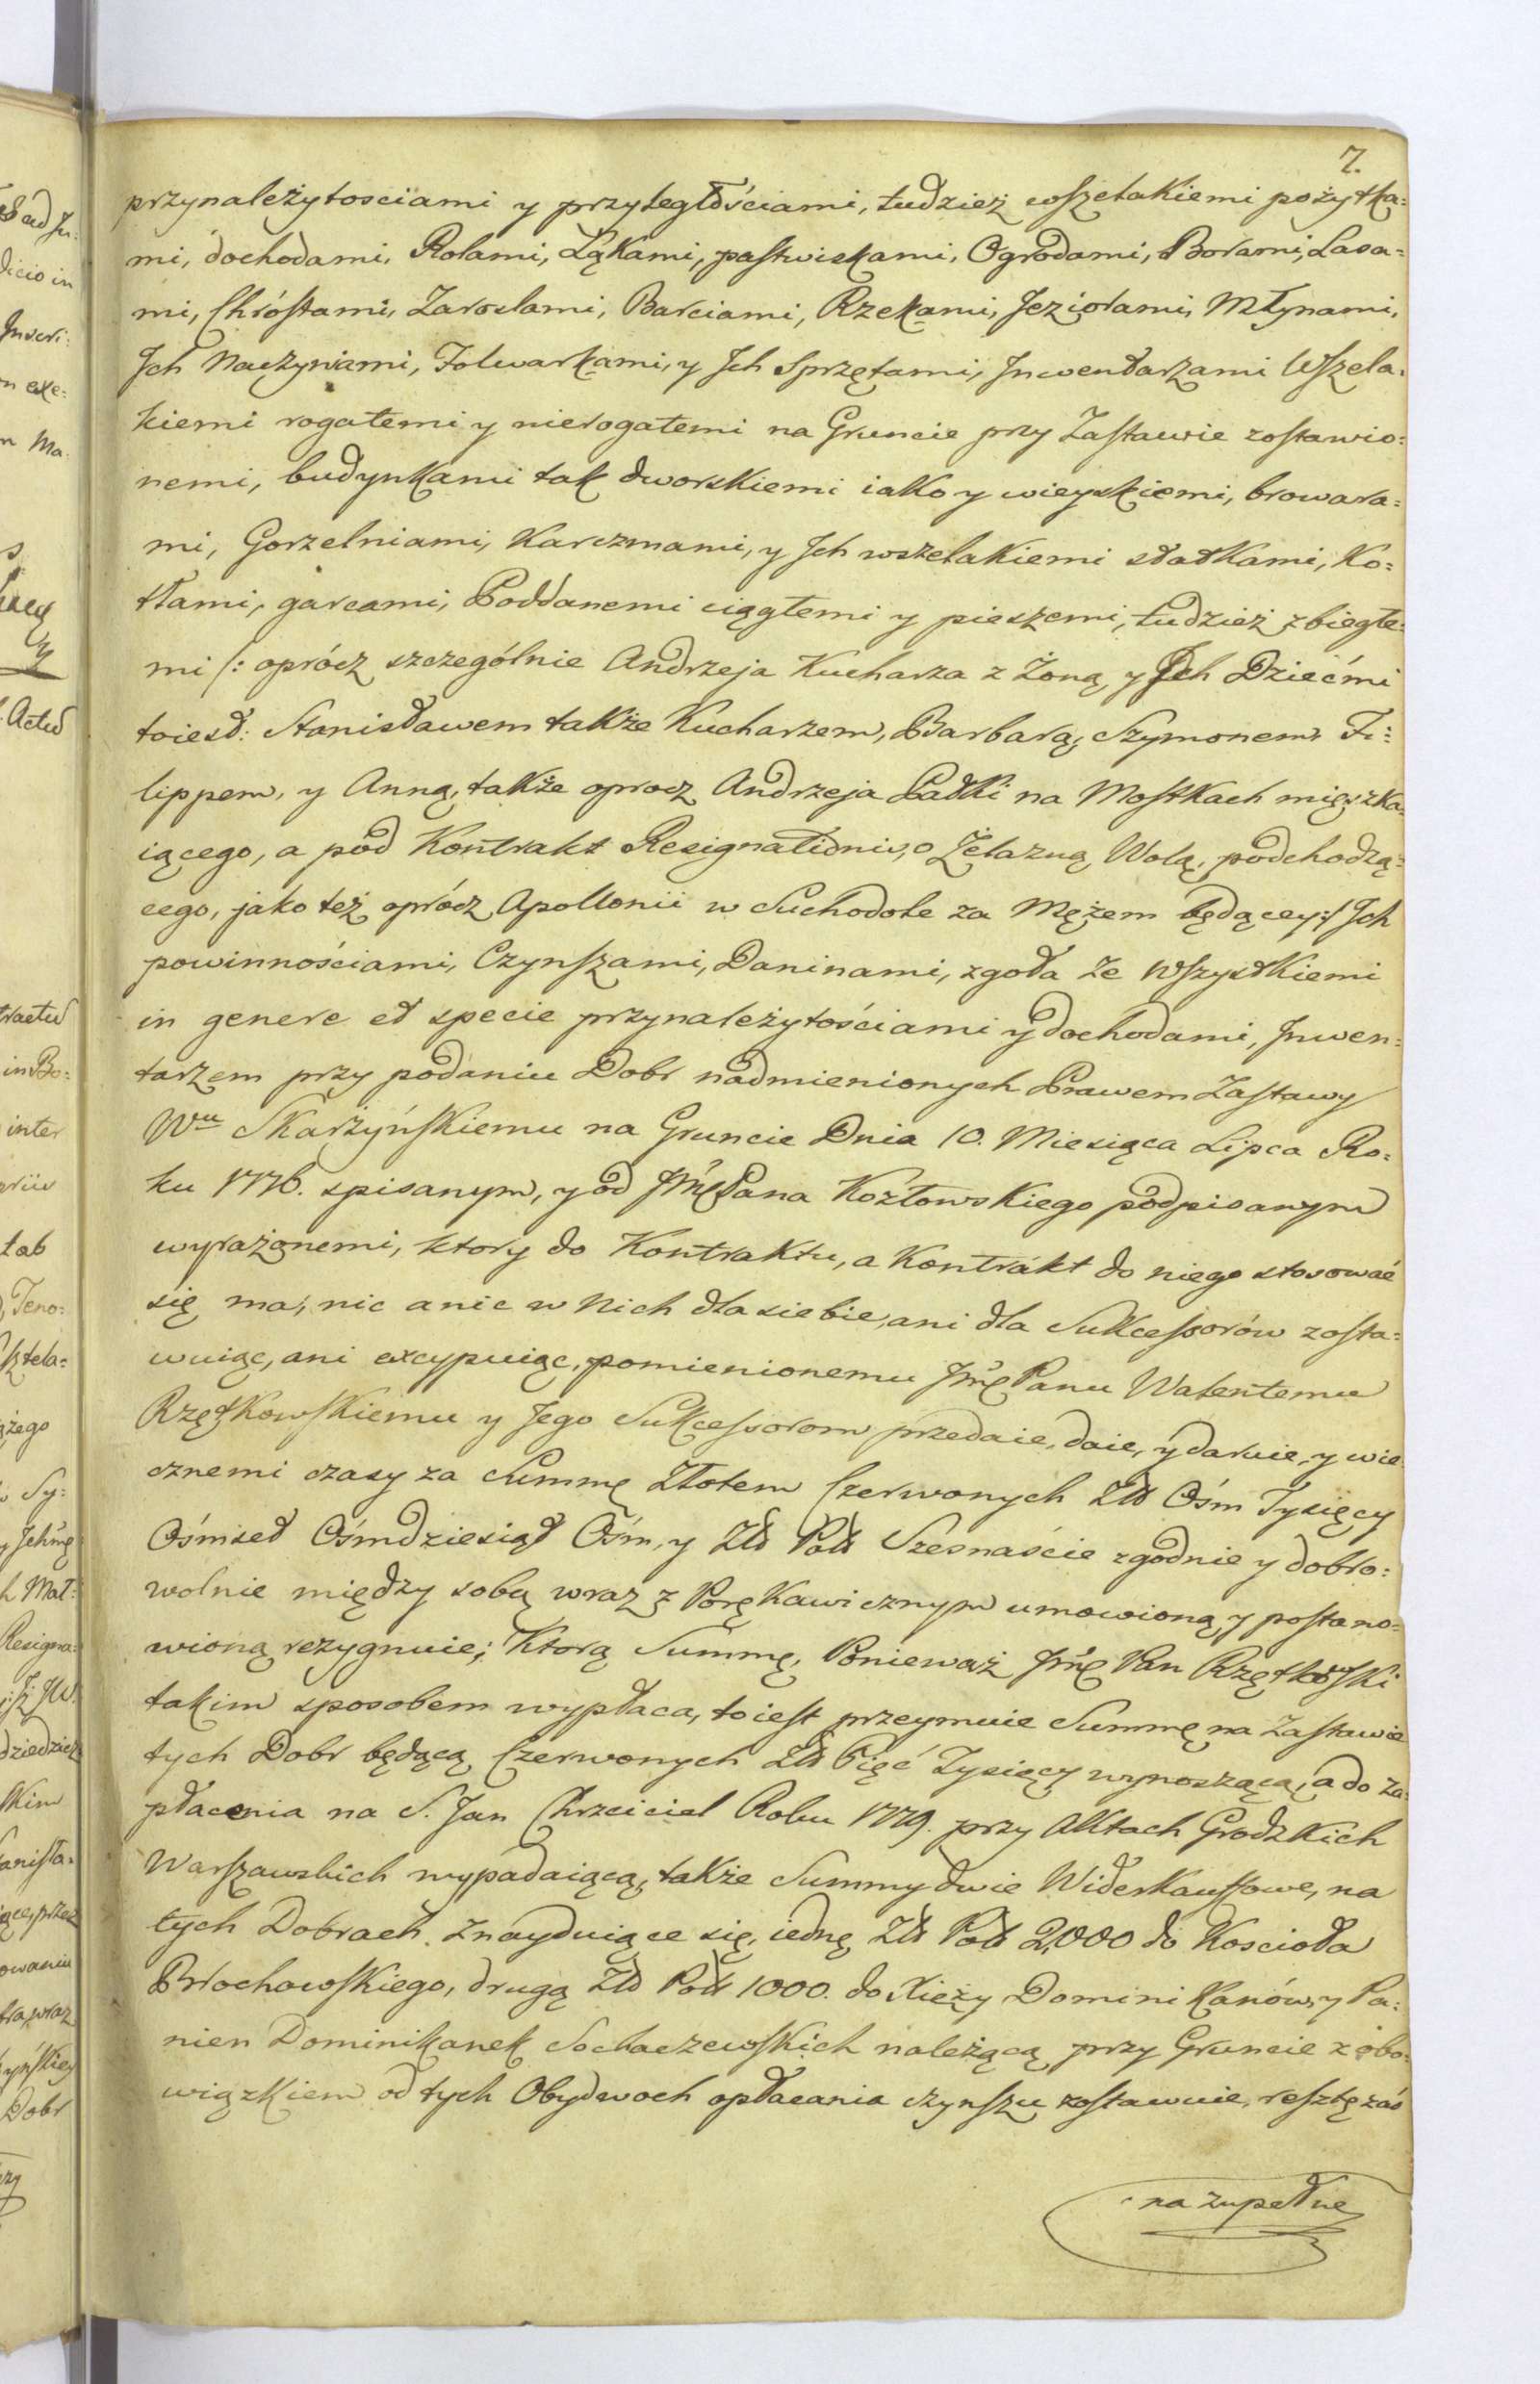 7.
przynależytosciami y przyległościami, tudzież wszelakiemi pożytka=
mi, dochodami, Rolami, Łąkami, pastwiskami, Ogrodami, Borami, Lasa=
mi, Chróstami, Zaroslami, Barciami, Rzekami, Jeziorami, Młynami,
Jch Naczyniami, Folwarkami, y Jch Sprzętami, Jnwentarzami Wszela=
kiemi rogatemi y nierogatemi na Gruncie przy Zastawie zostawio=
nemi, budynkami tak dworskiemi iako y wieyskiemi, browara=
mi, Gorzelniami, Karczmami, y Jch wszelakiemi statkami, Ko=
tłami, garcami, Poddanemi ciągłemi y pieszemi, tudzież zbiegłe=
mi /: oprócz szczególnie Andrzeja Kucharza z Żoną y Jch Dziećmi
toiest: Stanisławem także Kucharzem, Barbarą, Szymonem, Fi=
lippem, y Anną, także oprocz Andrzeja Pałki na Mostkach mięszka=
iącego, a pod Kontrakt Resignationis, o Żelazną Wolą, podchodzą=
cego, jako też oprócz Apollonii w Suchodole za Mężem będącey :/ Jch
powinnościami, Czynszami, Daninami, zgoła ze Wszystkiemi
in genere et specie przynależytościami y dochodami, Jnwen=
tarzem przy podaniu Dobr nadmienionych Prawem Zastawy
Wu Skarżyńskiemu na Gruncie Dnia 10. Miesiąca Lipca Ro=
ku 1776. spisanym, y od Jmę Pana Kozłowskiego podpisanym
wyrażonemi, ktory do Kontraktu, a Kontrakt do niego stosować
się ma, nic a nic w Nich dla siebie, ani dla Sukcessorów zosta=
wuiąc, ani excypuiąc, pomienionemu Jmę Panu Walentemu
Rzętkowskiemu y Jego Sukcessorom przedaie, daie, y daruie, y wie
cznemi czasy za Summę Złotem Czerwonych Złł Ośm Tysięcy
Ośmset Ośmdziesiąt Ośm, y Złł Poll Szesnaście zgodnie y dobro=
wolnie między sobą wraz z Porękawicznym umowioną y postano=
wioną rezygnuie; Ktorą Summę, Ponieważ Jmę Pan Rzętkowski
takim sposobem wypłaca, toiest przeymuie Summę na Zastawie
tych Dobr będącą Czerwonych Złł Pięć Tysięcy wynoszącą, a do za=
płacenia na S. Jan Chrzciciel Roku 1779. przy Aktach Grodzkich
Warszawskich wypadaiącą, także Summy dwie Widerkauffowe, na
tych Dobrach znayduiące się, iednę Złł Poll 2,000 do Koscioła
Brochowskiego, drugą Złł Poll 1000. do Xięży Dominikanów, y Pa=
nien Dominikanek Sochaczewskich należącą przy Gruncie z obo=
wiązkiem od tych Obydwoch opłacania czynszu zostawuie, resztę zaś
na zupełne